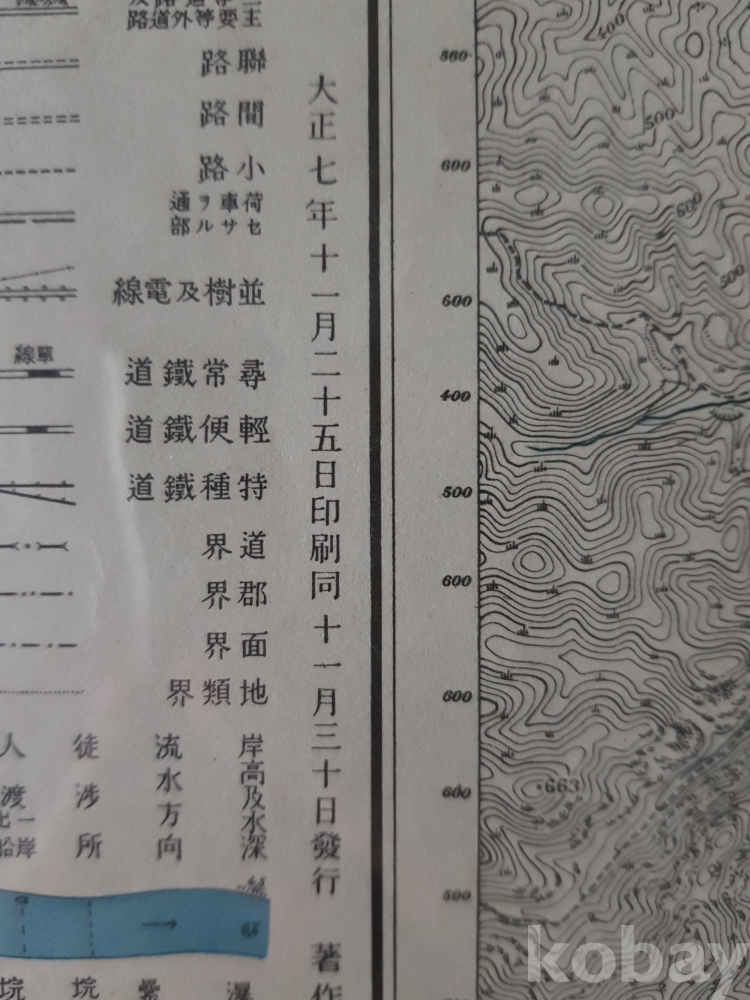 大正七年十一月二十五日印刷同十一月三十日發行 著作
主要等外道路
聯路
間路
小路
荷車ヲ通
セサル部
並樹及電線
單線
尋常鐵道
輕便鐵道
特種鐵道
道界
郡界
面界
地類界
岸高及水深
流水方向
徒涉所
人渡
560
600
600
400
500
600
600
600
500
400
500
500
500
·663
kobay